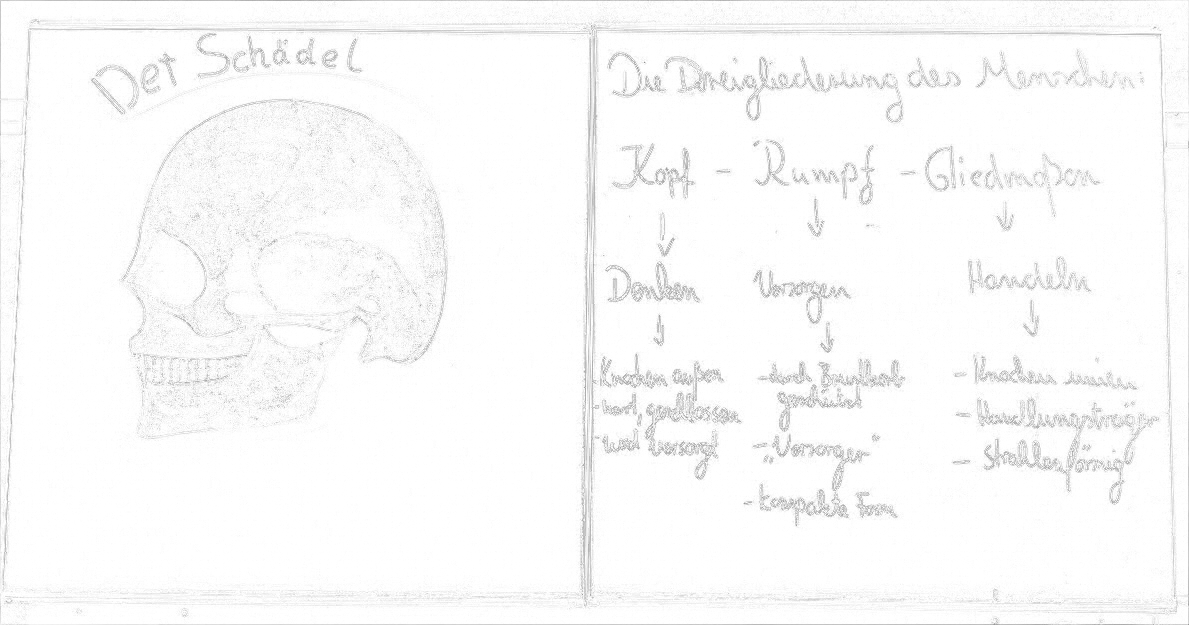 Der Schädel
Die Dreigliederung des Menschen:
Kopf - Rumpf - Gliedmaßen
↓ ↓ ↓
Denken Versorgen Handeln
↓ ↓ ↓
- Knochen außen
- hart, geschlossen
- wird versorgt
- durch Brustkorb
geschützt
- „Versorger"
- kompakte Form
- Knochen innen
- Handlungsträger
- Strahlenförmig